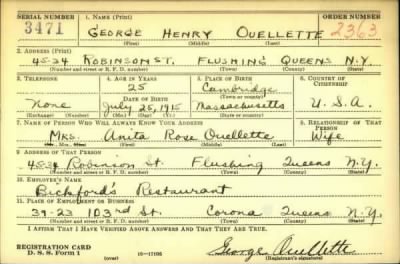 SERIAL NUMBER 1. NAME (Print) ORDER NUMBER
3471 GEORGE HENRY OUELLETTE 2363
(First) (Middle) (Last)
2. ADDRESS (Print)
45-34 ROBINSON ST. FLUSHING QUEENS N.Y.
(Number and street or R. F. D. number) (Town) (County) (State)
3. TELEPHONE 4. AGE IN YEARS 5. PLACE OF BIRTH 6. COUNTRY OF CITIZENSHIP
25 Cambridge
(Town or county)
None DATE OF BIRTH
July 25, 1915 Massachusetts U.S.A.
(Exchange) (Number) (Mo.) (Day) (Yr.) (State or country)
7. NAME OF PERSON WHO WILL ALWAYS KNOW YOUR ADDRESS 8. RELATIONSHIP OF THAT PERSON
Mrs. Anita Rose Ouellette Wife
(Mr., Mrs., Miss) (First) (Middle) (Last)
9. ADDRESS OF THAT PERSON
45-34 Robinson St. Flushing Queens N.Y.
(Number and street or R. F. D. number) (Town) (County) (State)
10. EMPLOYER'S NAME
Bickford's Restaurant
11. PLACE OF EMPLOYMENT OR BUSINESS
37-23 103rd St. Corona Queens N.Y.
(Number and street or R. F. D. number) (Town) (County) (State)
I AFFIRM THAT I HAVE VERIFIED ABOVE ANSWERS AND THAT THEY ARE TRUE.
REGISTRATION CARD
D. S. S. Form 1 (over) George Ouellette
(Registrant's signature)